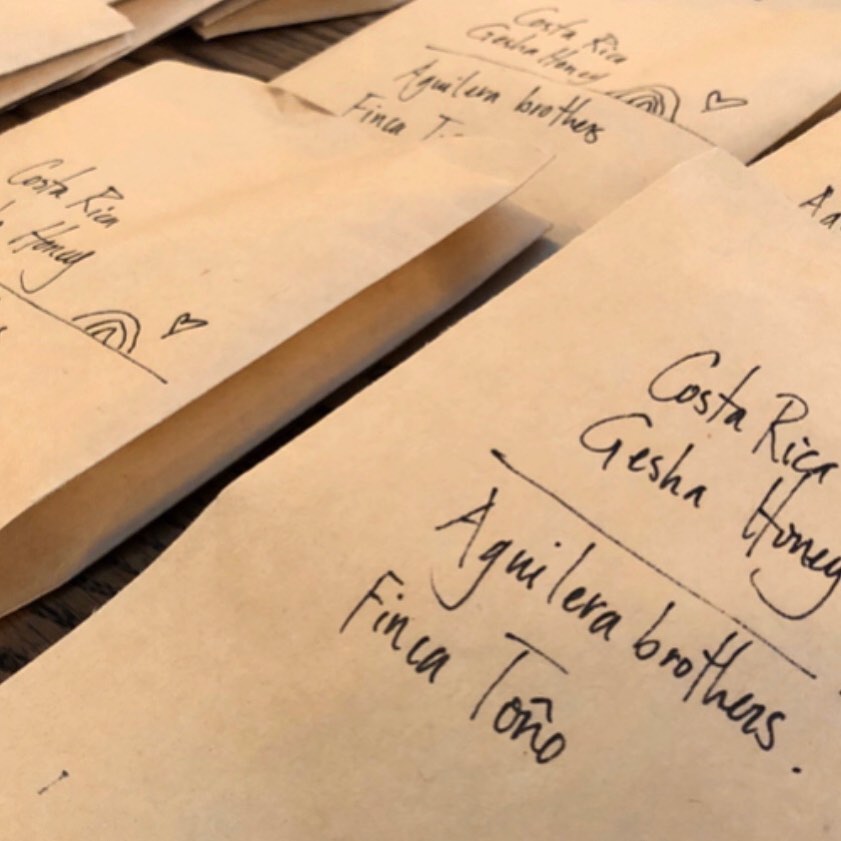 Costa Rica
Gesha Honey
Aguilera brothers
Finca
Costa Rica
Honey
Costa Rica
Gesha Honey
Aguilera brothers.
Finca Toño